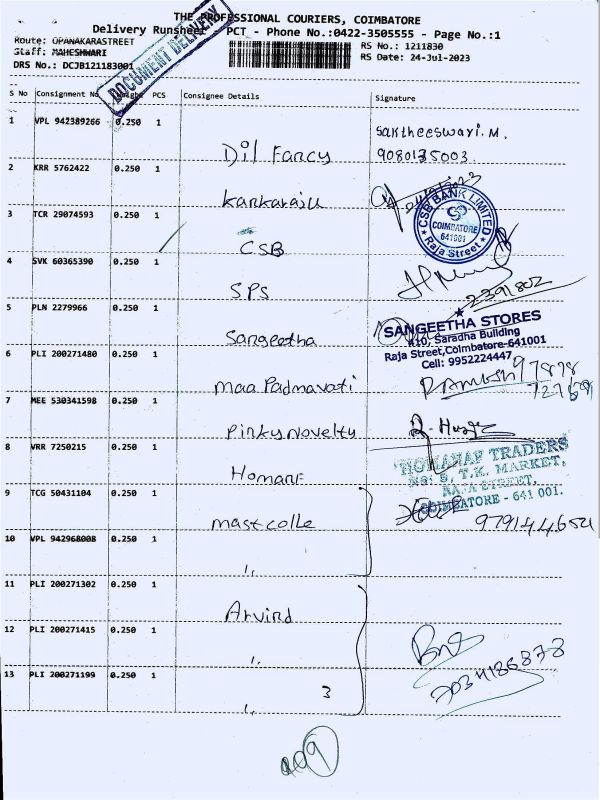 THE PROFESSIONAL COURIERS, COIMBATORE
Delivery Runsheet PCT - Phone No.:0422-3505555 - Page No.:1
Route: OPANAKARASTREET
RS No.: 1211830
Staff: MAHESHWARI
RS Date: 24-Jul-2023
DRS No.: DCJB121183001
DOCUMENT DELIVERY
S No Consignment No Weight PCS Consignee Details Signature
1 VPL 942389266 0.250 1 Dil Fancy
Saktheeswari.M.
9080135003
2 KRR 5762422 0.250 1 Kankaraju
3 TCR 29074593 0.250 1 CSB
CSB BANK LIMITED
COIMBATORE
641001
Raja Street
4 SVK 60365390 0.250 1 SPS
2391802
5 PLN 2279966 0.250 1 Sangeetha
SANGEETHA STORES
#10, Saradha Building
Raja Street,Coimbatore-641001
Cell: 9952224447
6 PLI 200271480 0.250 1 maa Padmavati
Ramesh 97878
7 MEE 530341598 0.250 1 Pinky Novelty
8 VRR 7250215 0.250 1 Homanf
TRADERS
No: 5, T.K. MARKET,
RAJA STREET,
COIMBATORE - 641 001.
9 TCG 50431104 0.250 1 mast colle
9791446521
10 VPL 942968008 0.250 1 ''
11 PLI 200271302 0.250 1 Arvind
12 PLI 200271415 0.250 1 ''
7034186878
13 PLI 200271199 0.250 1 ''
3